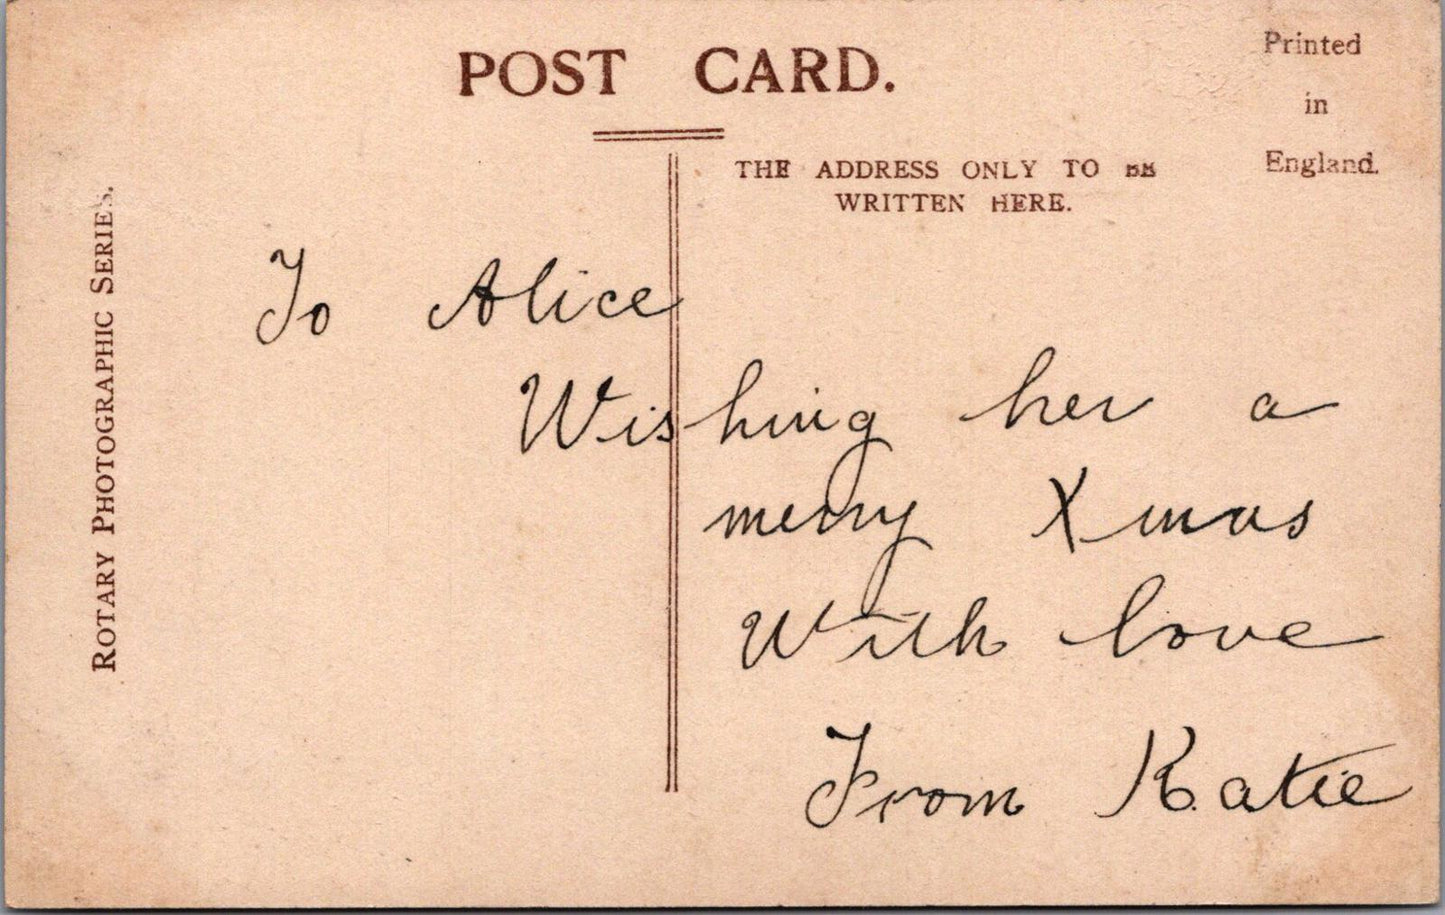 POST CARD.
Printed
in
England.
THE ADDRESS ONLY TO BE
WRITTEN HERE.
ROTARY PHOTOGRAPHIC SERIES.
To Alice
Wishing her a
merry Xmas
With love
From Katie